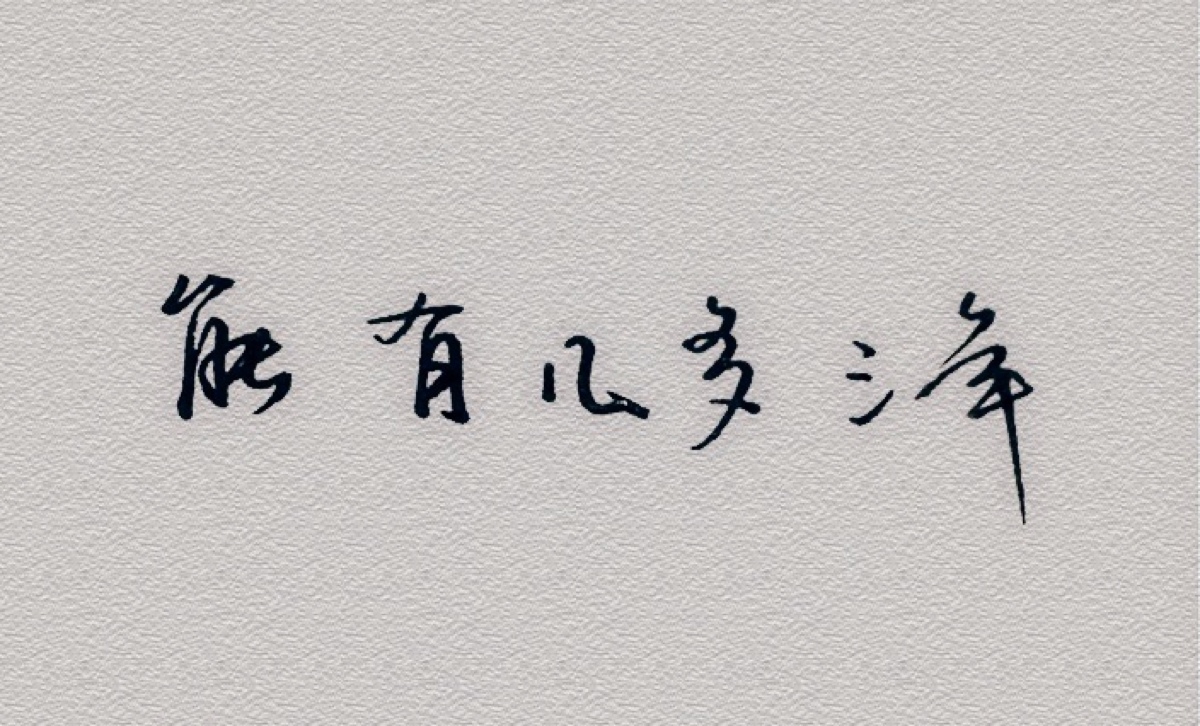 能有几多三年